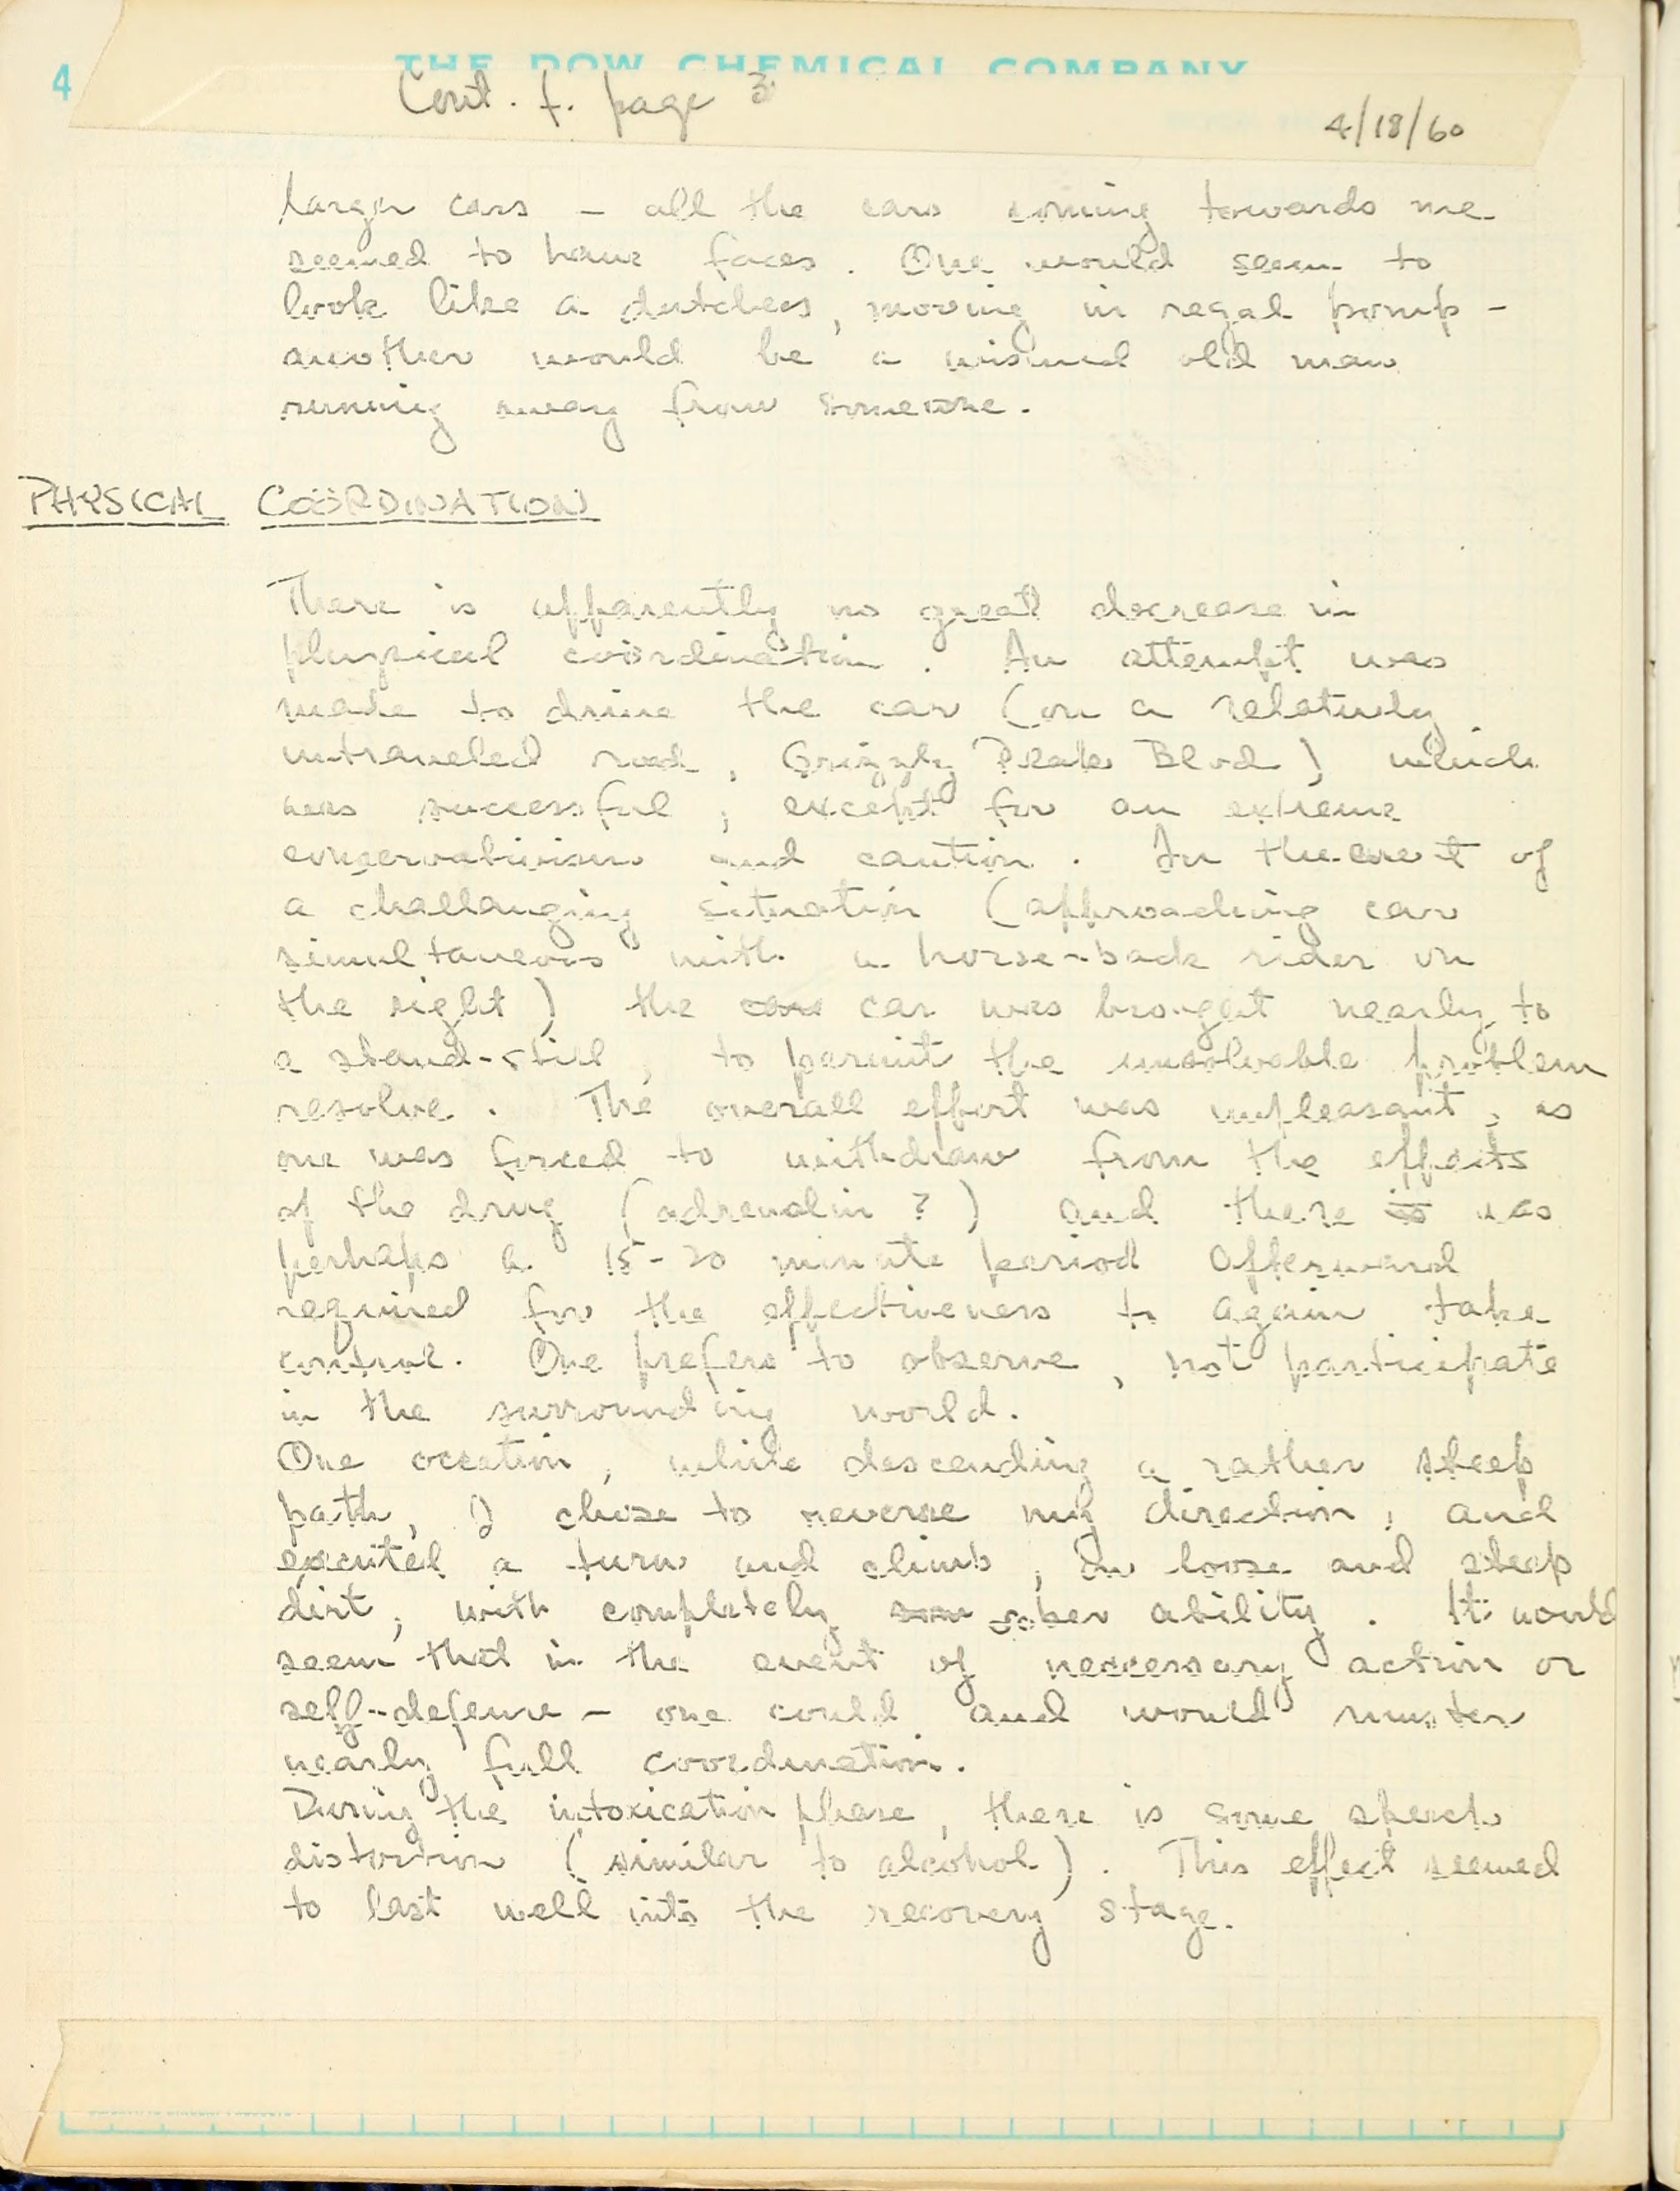 4
THE DOW CHEMICAL COMPANY
Cont. f. page 3
4/18/60
larger cars - all the cars coming towards me
seemed to have faces. One would seem to
look like a dutchess, moving in regal pomp -
another would be a old man
running away from someone.
PHYSICAL COÖRDINATION
There is apparently no great decrease in
physical coördination. An attempt was
made to drive the car (on a relatively
untraveled road, Grizzly Peak Blvd) which
was successful, except for an extreme
conservativism and caution. In the event of
a challanging situation (approaching car
simultaneous with a horse-back rider on
the right) the car was brought nearly to
a stand-still, to permit the unsolvable problem
resolve. The overall effort was unpleasant, as
one was forced to withdraw from the effects
of the drug (adrenalin?) and there is was
perhaps a 15-20 minute period afterward
required for the effectiveness to again take
control. One prefers to observe, not participate
in the surrounding world.
One occation, while descending a rather steep
path, I chose to reverse my direction, and
excuted a turn and climb, in loose and steep
dirt, with completely sober ability. It would
seem that in the event of neccessary action or
self-defense - one could and would muster
nearly full coordination.
During the intoxication phase, there is some speech
distortion (similar to alcohol). This effect seemed
to last well into the recovery stage.